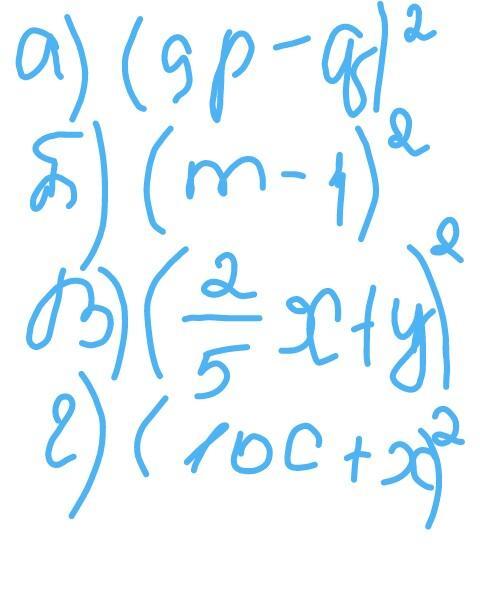 а) (9p - q)²
б) (m - 1)²
в) (2/5 x + y)²
г) (10c + x)²